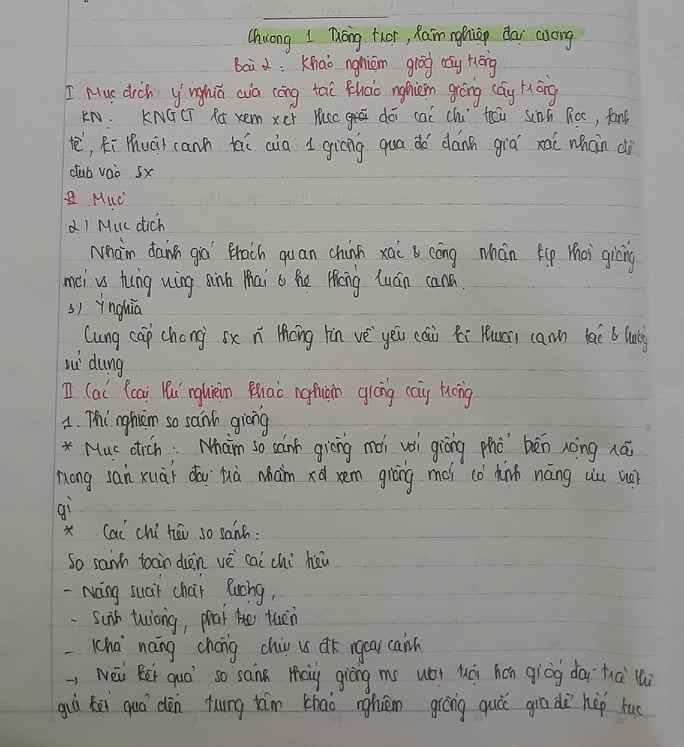 Chương 1 Trồng trọt, lâm nghiệp đại cương
Bài 2: Khảo nghiệm giống cây trồng
I Mục đích ý nghĩa của công tác khảo nghiệm giống cây trồng
KN: KNGCT là xem xét theo dõi các chỉ tiêu sinh học, kinh
tế, kĩ thuật canh tác của 1 giống qua đó đánh giá xác nhận để
đưa vào sx
Mục
2) Mục đích
Nhằm đánh giá khách quan chính xác & công nhận kịp thời giống
mới vs từng vùng sinh thái & hệ thống luân canh.
3) Ý nghĩa
Cung cấp cho ng sx n~ thông tin về yêu cầu kĩ thuật canh tác & hướng
sử dụng
II Các loại thí nghiệm khảo nghiệm giống cây trồng
1. Thí nghiệm so sánh giống
* Mục đích: Nhằm so sánh giống mới với giống phổ biến rộng rãi
trong sản xuất đại trà nhằm xđ xem giống mới có tính năng ưu việt
gì
* Các chỉ tiêu so sánh:
So sánh toàn diện về các chỉ tiêu
- Năng suất chất lượng,
- Sinh trưởng, phát triển
- Khả năng chống chịu vs đk ngoại cảnh
→ Nếu kết quả so sánh thấy giống ms vượt trội hơn giống đại trà thì
gửi kết quả đến trung tâm khảo nghiệm giống quốc gia để tiếp tục